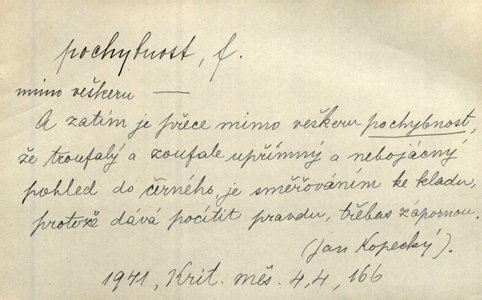 pochybnost, f.
mimo veškeru —
A zatím je přece mimo veškeru pochybnost,
že troufalý a zoufale upřímný a nebojácný
pohled do černého, je směřováním ke kladu,
protože dává pocítit pravdu, třebas zápornou.
(Jan Kopecký).
1941, Krit. měs. 4,4, 166